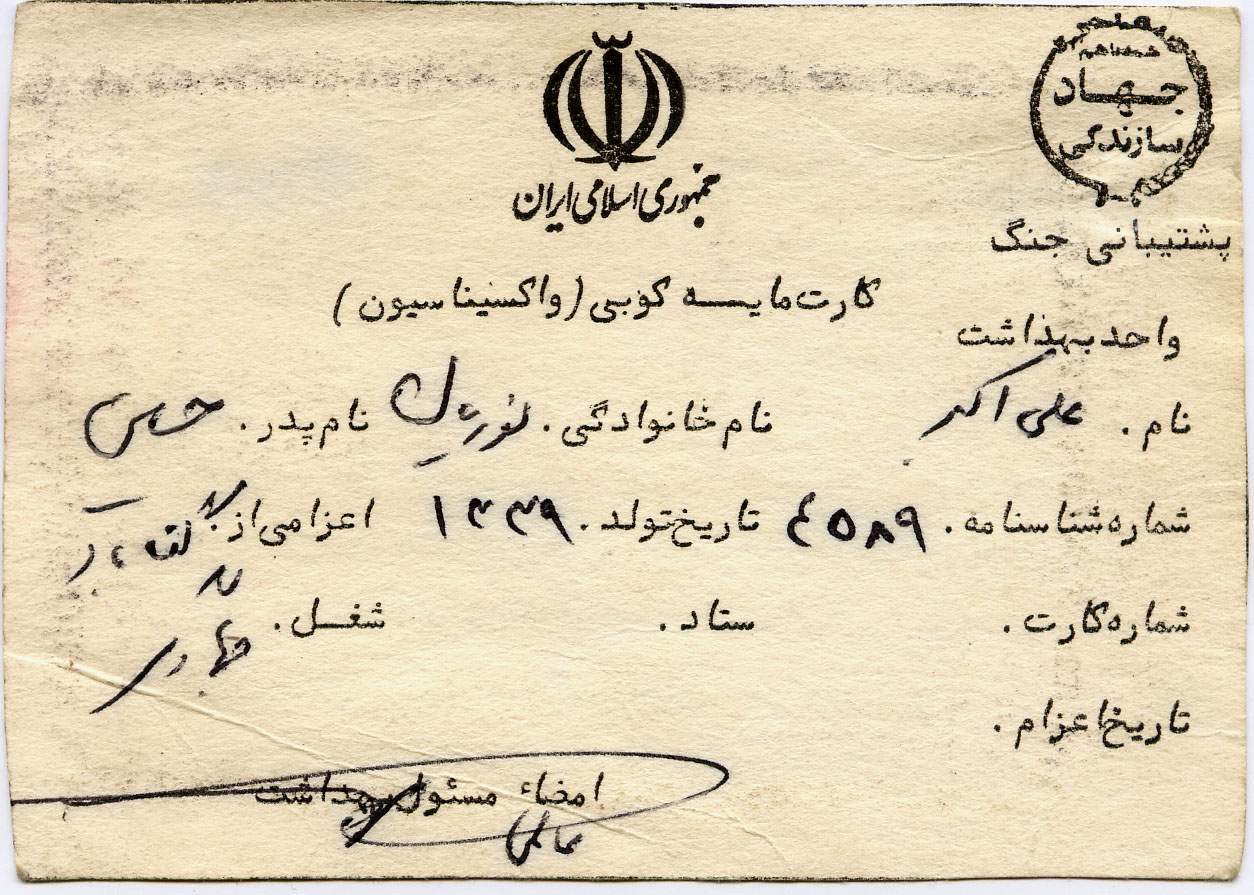 همه با هم
جهاد
سازندگی
جمهوری اسلامی ایران
پشتیبانی جنگ
کارت مایه کوبی (واکسیناسیون)
واحد بهداشت
نام. علی اکبر نام خانوادگی. نام پدر. حسن
شماره شناسنامه. ۴۵۸۹ تاریخ تولد. ۱۳۳۹ اعزامی از.
شماره کارت. ستاد. شغل.
تاریخ اعزام.
امضاء مسئول بهداشت